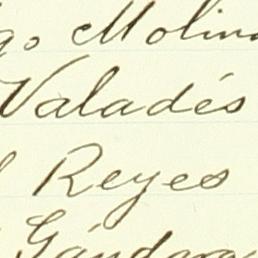 go Molina
Valadés
Reyes
Gándara